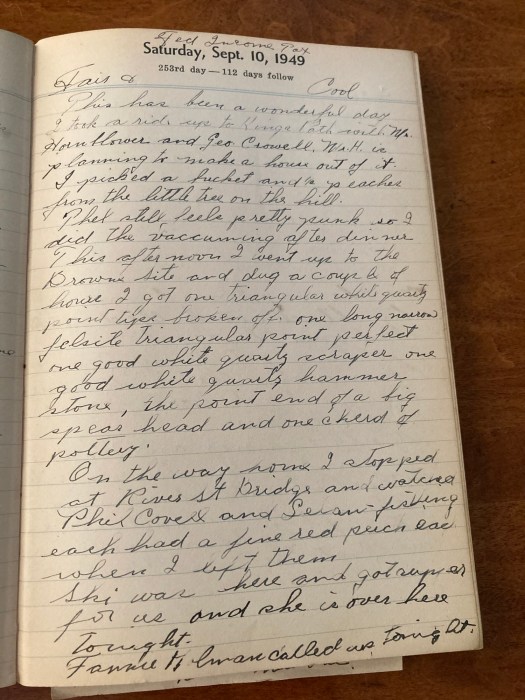 Fed Income Tax
Saturday, Sept. 10, 1949
253rd day—112 days follow
Fair & Cool
This has been a wonderful day
I took a ride up to Kings Path with Mr.
Hornblower and Geo Crowell. Mr H. is
planning to make a house out of it.
I picked a bucket and ½ peaches
from the little tree on the hill.
Phel still feels pretty punk so I
did the vaccuming after dinner
This after noon I went up to the
Browne Site and dug a couple of
hours I got one triangular white quartz
point tips broken off. one long narrow
felsite triangular point perfect
one good white quartz scraper one
good white quartz hammer
stone, the point end of a big
spear head and one cherd of
pottery.
On the way home I stopped
at River St Bridge and watched
Phil Covell and fishing
each had a fine red perch each
when I left them
Ski was here and got supper
for us and she is over here
tonight.
Fannie called us tonight.